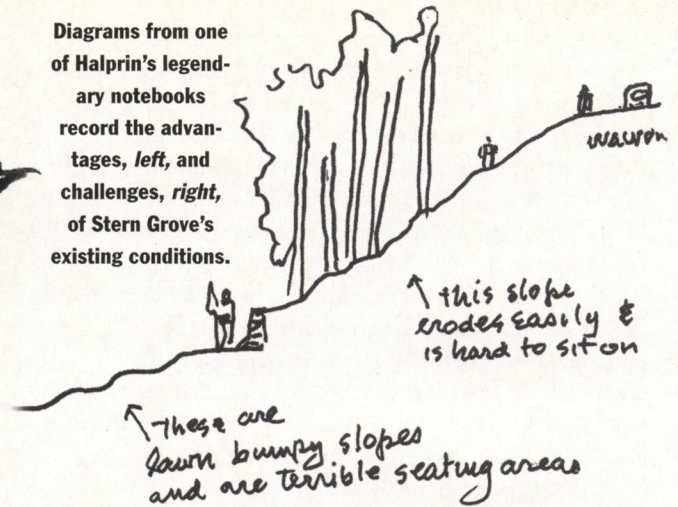 Diagrams from one
of Halprin's legend-
ary notebooks
record the advan-
tages, left, and
challenges, right,
of Stern Grove's
existing conditions.
wawon
this slope
erodes easily &
is hard to sit on
These are
lawn bumpy slopes
and are terrible seating areas